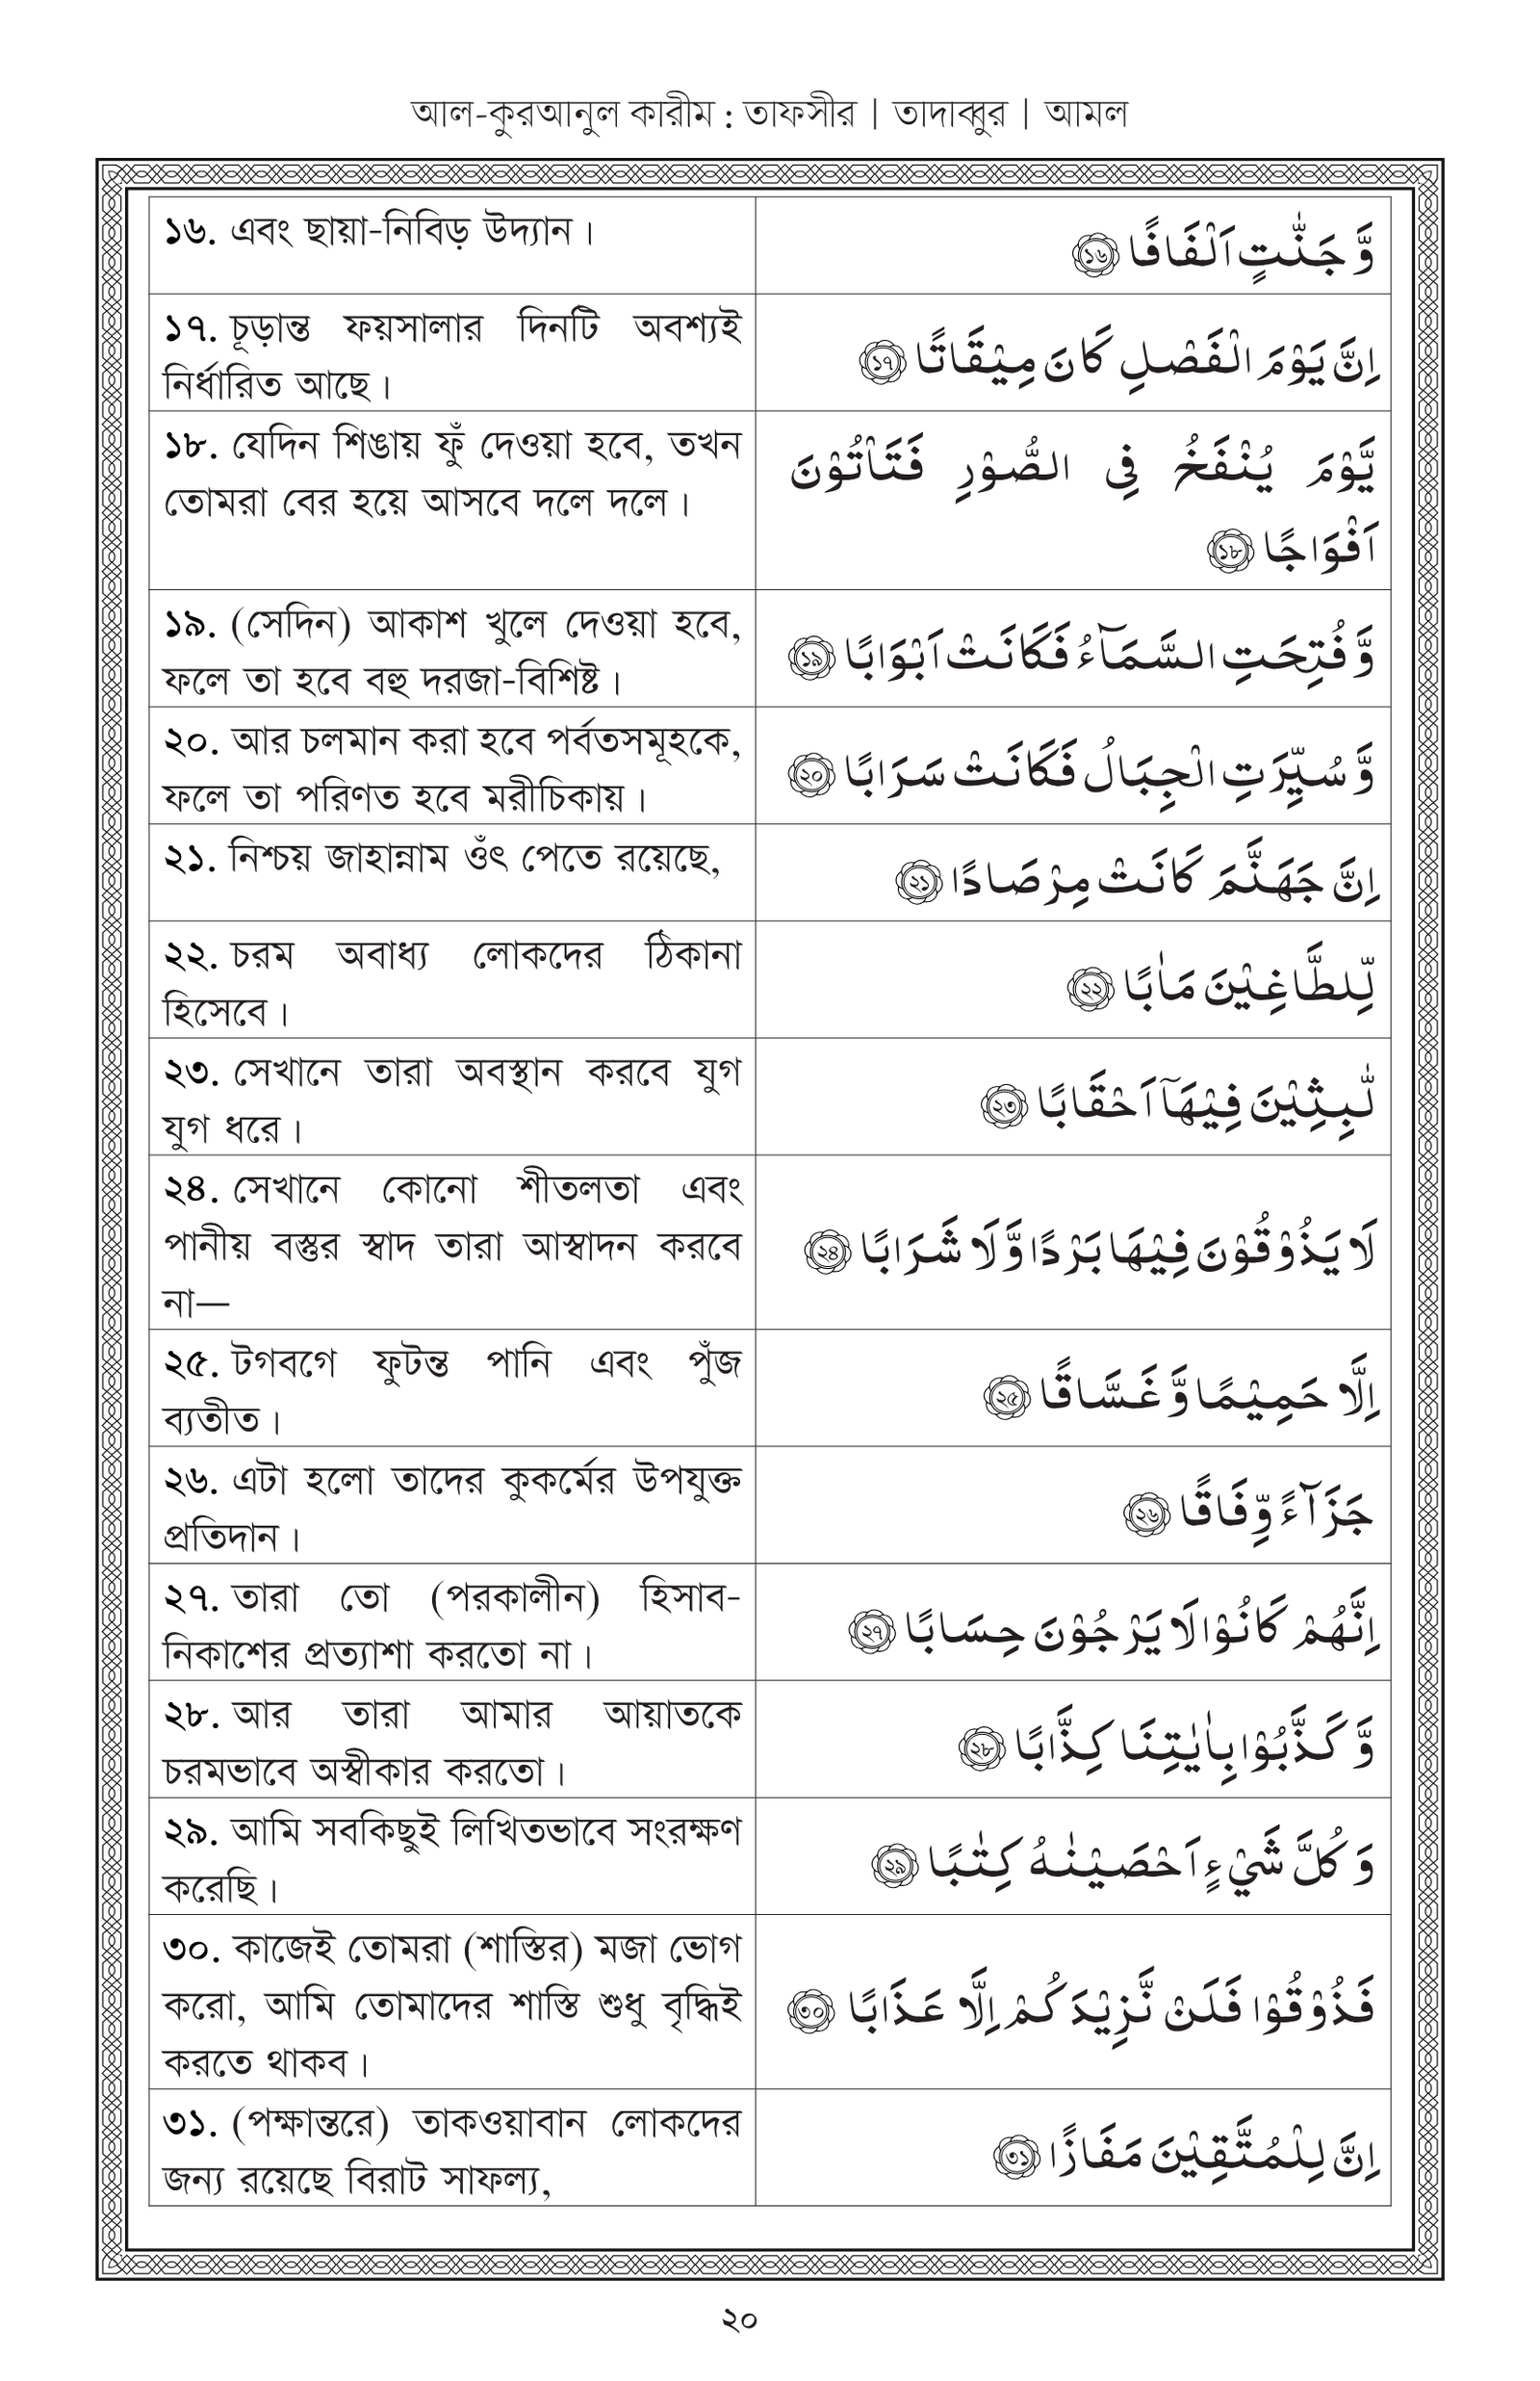 আল-কুরআনুল কারীম : তাফসীর | তাদাব্বুর | আমল
১৬. এবং ছায়া-নিবিড় উদ্যান।
وَّ جَنّٰتٍ اَلْفَافًا ۝১৬
১৭. চূড়ান্ত ফয়সালার দিনটি অবশ্যই
নির্ধারিত আছে।
اِنَّ يَوْمَ الْفَصْلِ كَانَ مِيْقَاتًا ۝১৭
১৮. যেদিন শিঙায় ফুঁ দেওয়া হবে, তখন
তোমরা বের হয়ে আসবে দলে দলে।
يَّوْمَ يُنْفَخُ فِى الصُّوْرِ فَتَاْتُوْنَ
اَفْوَاجًا ۝১৮
১৯. (সেদিন) আকাশ খুলে দেওয়া হবে,
ফলে তা হবে বহু দরজা-বিশিষ্ট।
وَّ فُتِحَتِ السَّمَآءُ فَكَانَتْ اَبْوَابًا ۝১৯
২০. আর চলমান করা হবে পর্বতসমূহকে,
ফলে তা পরিণত হবে মরীচিকায়।
وَّ سُيِّرَتِ الْجِبَالُ فَكَانَتْ سَرَابًا ۝২০
২১. নিশ্চয় জাহান্নাম ওঁৎ পেতে রয়েছে,
اِنَّ جَهَنَّمَ كَانَتْ مِرْصَادًا ۝২১
২২. চরম অবাধ্য লোকদের ঠিকানা
হিসেবে।
لِّلطَّاغِيْنَ مَاٰبًا ۝২২
২৩. সেখানে তারা অবস্থান করবে যুগ
যুগ ধরে।
لّٰبِثِيْنَ فِيْهَآ اَحْقَابًا ۝২৩
২৪. সেখানে কোনো শীতলতা এবং
পানীয় বস্তুর স্বাদ তারা আস্বাদন করবে
না—
لَا يَذُوْقُوْنَ فِيْهَا بَرْدًا وَّلَا شَرَابًا ۝২৪
২৫. টগবগে ফুটন্ত পানি এবং পুঁজ
ব্যতীত।
اِلَّا حَمِيْمًا وَّ غَسَّاقًا ۝২৫
২৬. এটা হলো তাদের কুকর্মের উপযুক্ত
প্রতিদান।
جَزَآءً وِّفَاقًا ۝২৬
২৭. তারা তো (পরকালীন) হিসাব-
নিকাশের প্রত্যাশা করতো না।
اِنَّهُمْ كَانُوْا لَا يَرْجُوْنَ حِسَابًا ۝২৭
২৮. আর তারা আমার আয়াতকে
চরমভাবে অস্বীকার করতো।
وَّ كَذَّبُوْا بِاٰيٰتِنَا كِذَّابًا ۝২৮
২৯. আমি সবকিছুই লিখিতভাবে সংরক্ষণ
করেছি।
وَ كُلَّ شَيْءٍ اَحْصَيْنٰهُ كِتٰبًا ۝২৯
৩০. কাজেই তোমরা (শাস্তির) মজা ভোগ
করো, আমি তোমাদের শাস্তি শুধু বৃদ্ধিই
করতে থাকব।
فَذُوْقُوْا فَلَنْ نَّزِيْدَكُمْ اِلَّا عَذَابًا ۝৩০
৩১. (পক্ষান্তরে) তাকওয়াবান লোকদের
জন্য রয়েছে বিরাট সাফল্য,
اِنَّ لِلْمُتَّقِيْنَ مَفَازًا ۝৩১
২০